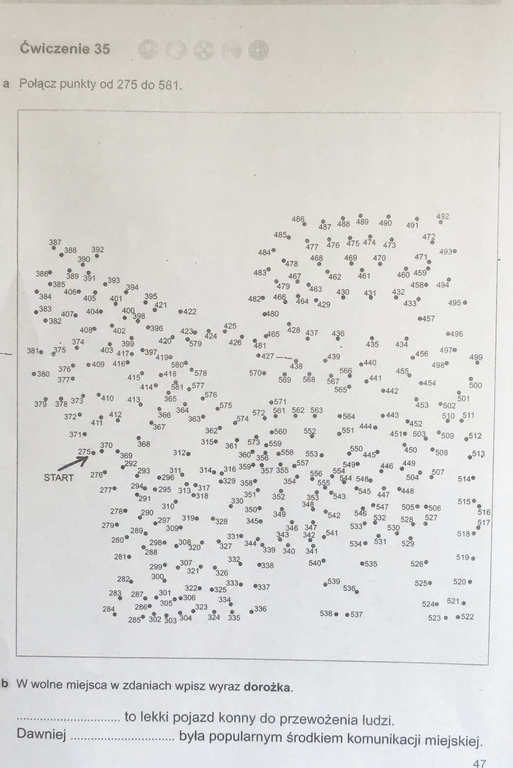 Ćwiczenie 35
a Połącz punkty od 275 do 581.
486 487 488 489 490 491 492
485 477 476 475 474 473 472
484 478 468 469 470 471 493
387 388 392
390
386 389 391 393 483 467 462 461 460 459
385 394 479 463 458 494
384 406 405 401 395 482 466 464 429 430 431 432 433 495
383 407 404 400 398 421 422 480 457
382
408 402 396 423 424 425 465 428 437 436 435 434 496
374 399 420 579 426 481
381 375 403 417 397 419 427 439 456 497 499
376 409 416 580 438 440 455 498
380 377 415 418 578 570 569 568 567 566 441 454 500
414 581 577 565 442
379 378 373 410 413 365 576 571 453 502 501
372 411 412 366 364 363 575 572 561 562 563 564 443 452 510 511
371 367 362 574 560 552 551 444 451 503 509 512
275 370 369 368 312 315 361 573 559 558 553 550 445 450 508 513
START
276 292 293 296 311 314 316 359 360 356 357 355 557 556 554 549 446 449 504 507 514
277 294 295 313 317 318 329 358 354 555 544 548 447 448
291 310 330 351 352 353 543 545 505 506 515
278 290 297 319 328 350 349 348 542 546 547 528 527 516
279 289 309 345 346 347 533 532 530 517
280 298 308 320 331 327 344 343 342 541 534 531 529 518
281 288 339 340 341
299 307 321 326 332 338 540 535 526 519
282 300 322 325 333 337 539 536 525 520
283 287 301 306 334
284 286 305 323 336 524 521
285 302 303 304 324 335 538 537 523 522
b W wolne miejsca w zdaniach wpisz wyraz dorożka.
.............................. to lekki pojazd konny do przewożenia ludzi.
Dawniej .............................. była popularnym środkiem komunikacji miejskiej.
47